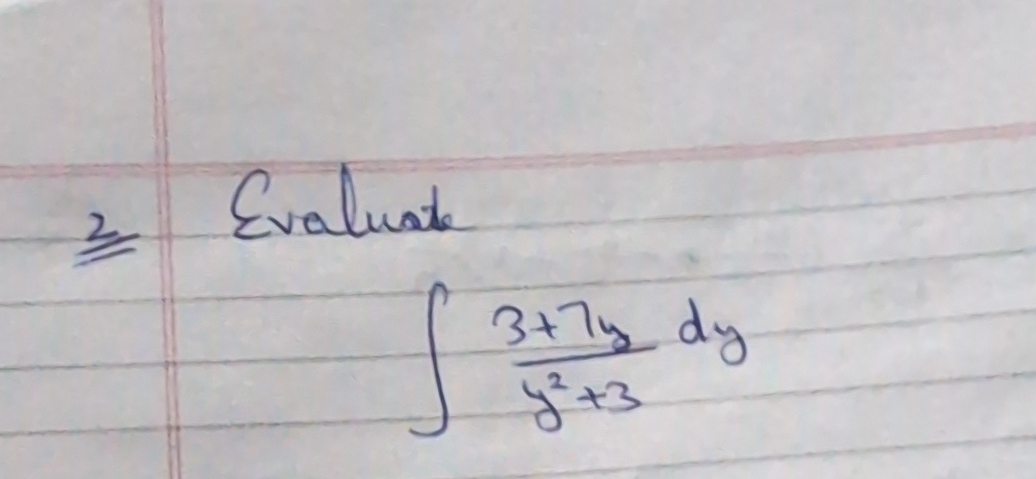 2 Evaluate
∫ 3+7y/y²+3 dy